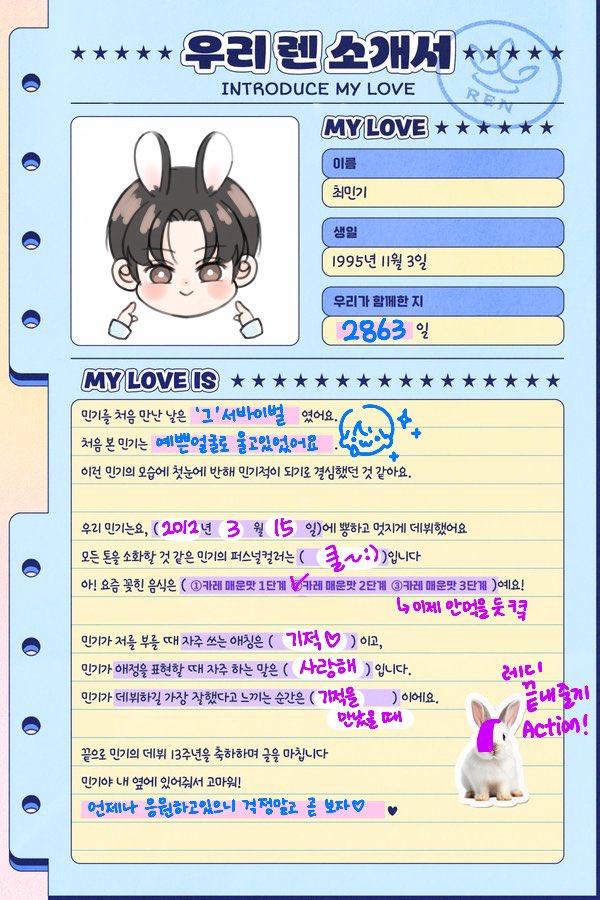 ★★★★★ 우리 렌 소개서 ★★★★★
INTRODUCE MY LOVE
REN
MY LOVE ★★★★★★
이름
최민기
생일
1995년 11월 3일
우리가 함께한 지
2863 일
MY LOVE IS ★★★★★★★★★★★★★★★★★
민기를 처음 만난 날은 '그'서바이벌 였어요.
처음 본 민기는 예쁜얼굴로 울고있었어요.
이런 민기의 모습에 첫눈에 반해 민기적이 되기로 결심했던 것 같아요.
우리 민기는요, (2012년 3 월 15 일)에 뿅하고 멋지게 데뷔했어요
모든 톤을 소화할 것 같은 민기의 퍼스널컬러는 ( 쿨~:) )입니다
아! 요즘 꽂힌 음식은 ( ①카레 매운맛 1단계 ✓카레 매운맛 2단계 ③카레 매운맛 3단계 )예요!
↳이제 안먹을 듯 ㅋㅋ
민기가 저를 부를 때 자주 쓰는 애칭은 ( 기적♡ ) 이고,
민기가 애정을 표현할 때 자주 하는 말은 ( 사랑해 ) 입니다.
민기가 데뷔하길 가장 잘했다고 느끼는 순간은 (기적을 만났을 때 ) 이에요.
레디
끝내줄게
Action!
끝으로 민기의 데뷔 13주년을 축하하며 글을 마칩니다
민기야 내 옆에 있어줘서 고마워!
언제나 응원하고있으니 걱정말고 곧 보자♡ ♥